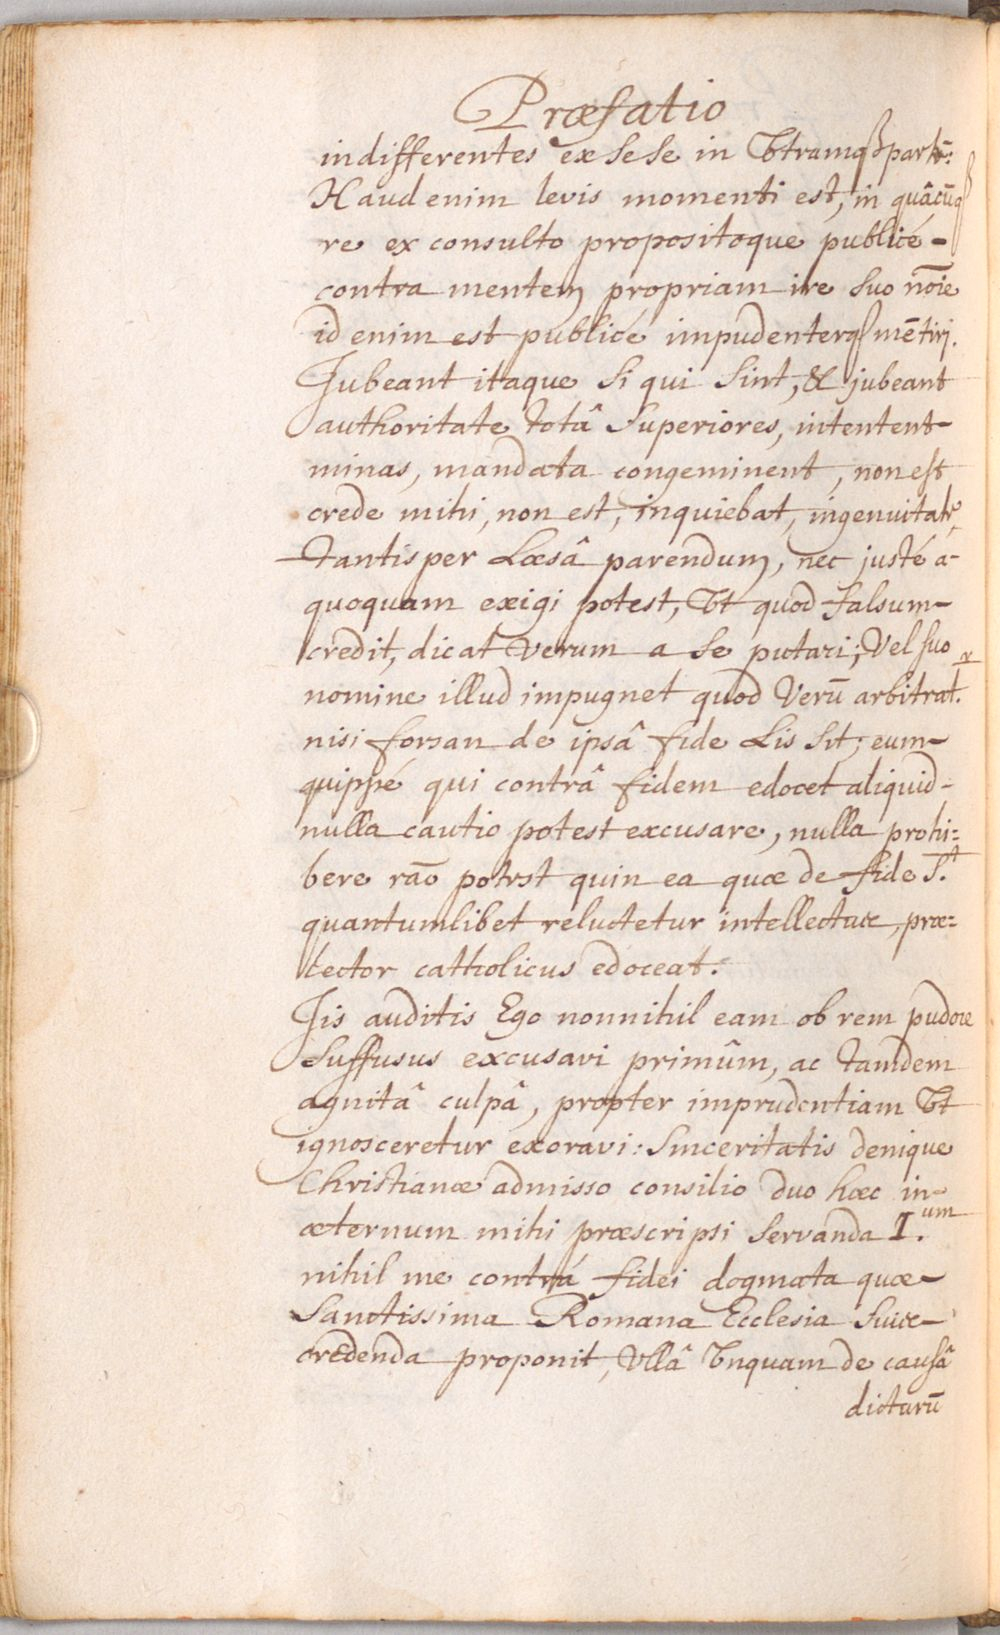 Præfatio
indifferentes ex sese in Vtramq; partē.
Haud enim levis momenti est, in quâcūq
re ex consulto propositoque publicé-
contra mentem propriam ire suo nōie
id enim est publicé impudenterq; mētiri.
Jubeant itaque si qui sint, & jubeant
authoritate totâ superiores, intentent-
minas, mandata congeminent, non est
crede mihi, non est, inquiebat, ingenuitate,
tantisper Læsâ parendum, nec justé a-
quoquam exigi potest, Vt quod falsum-
credit, dicat verum a se putari; Vel suo
nomine illud impugnet quod Verū arbitrat.r
nisi forsan de ipsâ fide Lis sit; eum-
quippé qui contrâ fidem edocet aliquid-
nulla cautio potest excusare, nulla prohi=
bere rāo potest quin ea quæ de fide S.t
quantumlibet reluctetur intellectus, præ=
lector catholicus edoceat.
Jis auditis Ego nonnihil eam ob rem pudore
suffusus excusavi primûm, ac tandem
agnitâ culpâ, propter imprudentiam Vt
ignosceretur exoravi: Sinceritatis denique
Christianæ admisso consilio duo hæc in-
æternum mihi præscripsi servanda I.um
nihil me contrá fidei dogmata quæ-
Sanctissima Romana Ecclesia suis-
credenda proponit, Vllâ Vnquam de causâ
dicturū